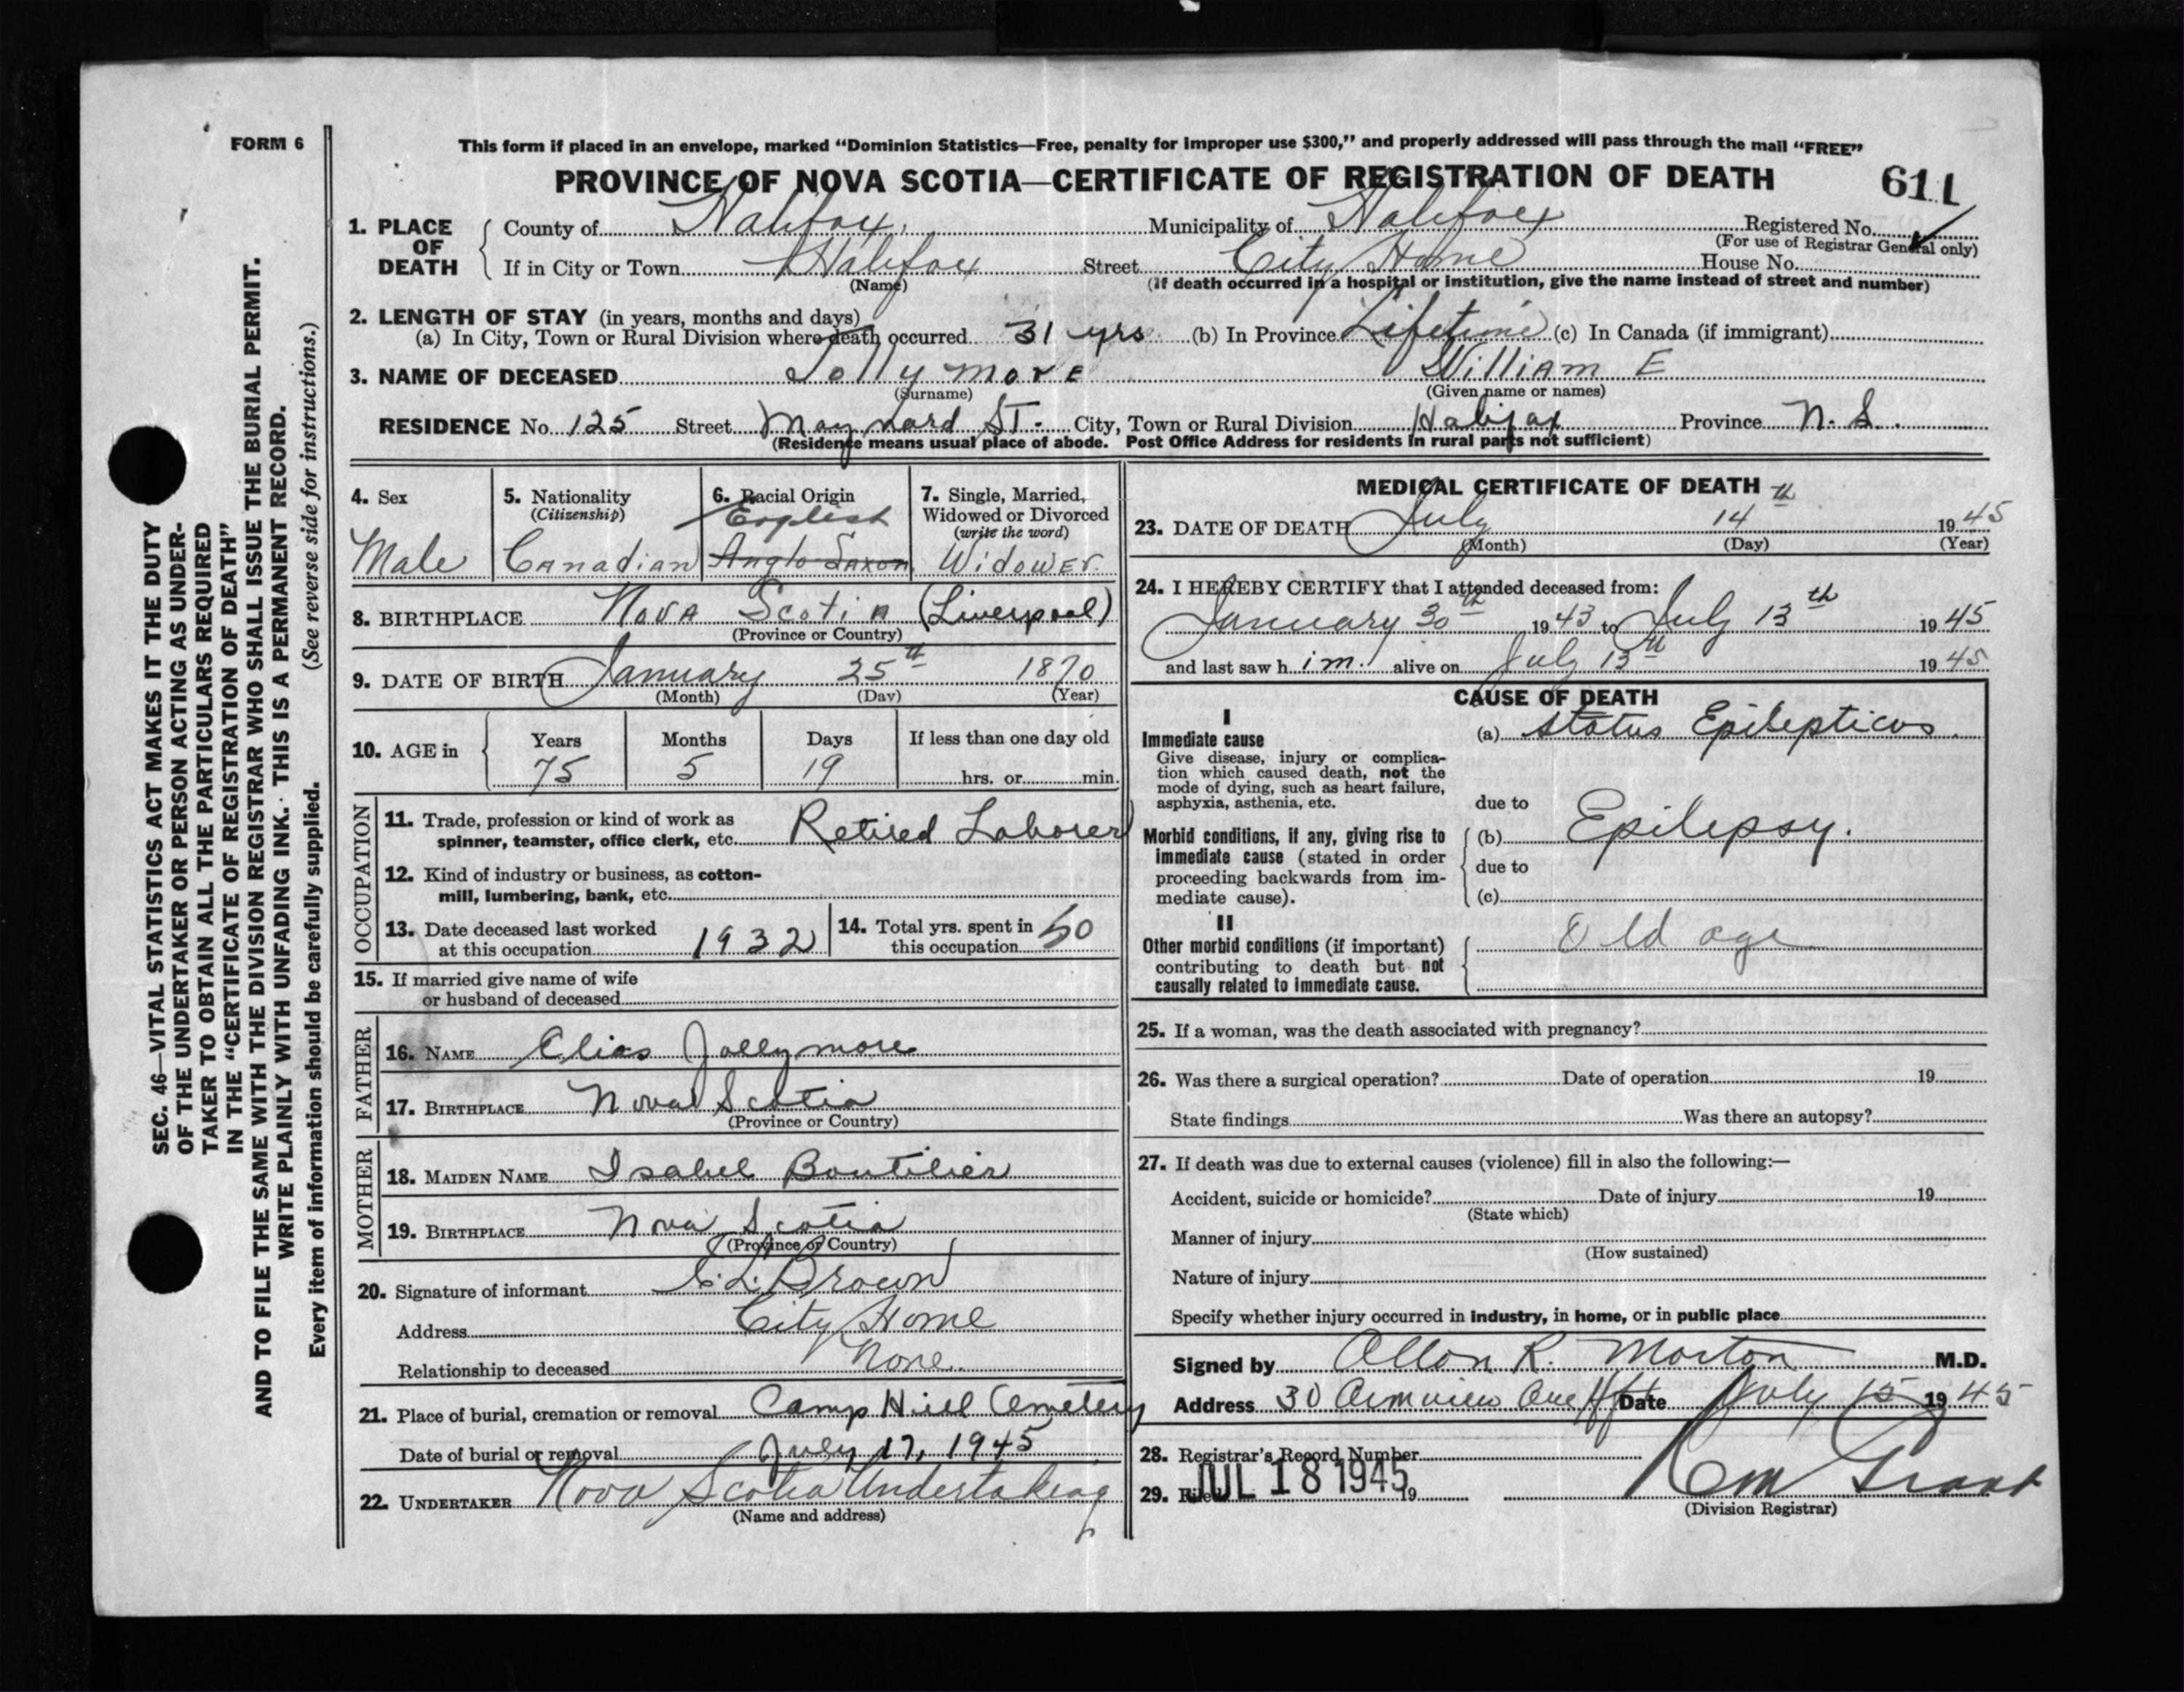 FORM 6
This form if placed in an envelope, marked “Dominion Statistics—Free, penalty for improper use $300,” and properly addressed will pass through the mail “FREE”
PROVINCE OF NOVA SCOTIA—CERTIFICATE OF REGISTRATION OF DEATH 611
1. PLACE OF DEATH County of Halifax, Municipality of Halifax Registered No.
(For use of Registrar General only)
If in City or Town Halifax Street City Home House No.
(Name) (If death occurred in a hospital or institution, give the name instead of street and number)
2. LENGTH OF STAY (in years, months and days)
(a) In City, Town or Rural Division where death occurred 31 yrs (b) In Province Lifetime (c) In Canada (if immigrant)
3. NAME OF DECEASED Jollymore William E
(Surname) (Given name or names)
RESIDENCE No. 125 Street Maynard ST. City, Town or Rural Division Halifax Province N.S.
(Residence means usual place of abode. Post Office Address for residents in rural parts not sufficient)
4. Sex Male
5. Nationality (Citizenship) Canadian
6. Racial Origin English Anglo Saxon
7. Single, Married, Widowed or Divorced (write the word) Widower.
8. BIRTHPLACE Nova Scotia (Liverpool)
(Province or Country)
9. DATE OF BIRTH January 25th 1870
(Month) (Day) (Year)
10. AGE in Years Months Days If less than one day old
75 5 19 hrs. or min.
OCCUPATION
11. Trade, profession or kind of work as
spinner, teamster, office clerk, etc. Retired Laborer
12. Kind of industry or business, as cotton-
mill, lumbering, bank, etc.
13. Date deceased last worked
at this occupation 1932
14. Total yrs. spent in
this occupation 50
15. If married give name of wife
or husband of deceased
FATHER
16. NAME Elias Jollymore
17. BIRTHPLACE Nova Scotia
(Province or Country)
MOTHER
18. MAIDEN NAME Isabel Boutilier
19. BIRTHPLACE Nova Scotia
(Province or Country)
20. Signature of informant L. Brown
Address City Home
Relationship to deceased None.
21. Place of burial, cremation or removal Camp Hill Cemetery
Date of burial or removal July 17, 1945
22. UNDERTAKER Nova Scotia Undertaking
(Name and address)
MEDICAL CERTIFICATE OF DEATH
23. DATE OF DEATH July 14th 1945
(Month) (Day) (Year)
24. I HEREBY CERTIFY that I attended deceased from:
January 30th 1943 to July 13th 1945
and last saw him. alive on July 13th 1945
CAUSE OF DEATH
I
Immediate cause
Give disease, injury or complica-
tion which caused death, not the
mode of dying, such as heart failure,
asphyxia, asthenia, etc.
(a) Status Epilepticus.
due to
Morbid conditions, if any, giving rise to
immediate cause (stated in order
proceeding backwards from im-
mediate cause).
(b) Epilepsy.
due to
(c)
II
Other morbid conditions (if important)
contributing to death but not
causally related to immediate cause.
Old age
25. If a woman, was the death associated with pregnancy?
26. Was there a surgical operation? Date of operation 19
State findings Was there an autopsy?
27. If death was due to external causes (violence) fill in also the following:—
Accident, suicide or homicide? Date of injury 19
(State which)
Manner of injury
(How sustained)
Nature of injury
Specify whether injury occurred in industry, in home, or in public place
Signed by Allon R. Morton M.D.
Address 30 Armview Ave Hfx Date July 15 1945
28. Registrar's Record Number
29. JUL 18 1945 19
(Division Registrar)
SEC. 46—VITAL STATISTICS ACT MAKES IT THE DUTY
OF THE UNDERTAKER OR PERSON ACTING AS UNDER-
TAKER TO OBTAIN ALL THE PARTICULARS REQUIRED
IN THE “CERTIFICATE OF REGISTRATION OF DEATH”
AND TO FILE THE SAME WITH THE DIVISION REGISTRAR WHO SHALL ISSUE THE BURIAL PERMIT.
WRITE PLAINLY WITH UNFADING INK. THIS IS A PERMANENT RECORD.
Every item of information should be carefully supplied. (See reverse side for instructions.)